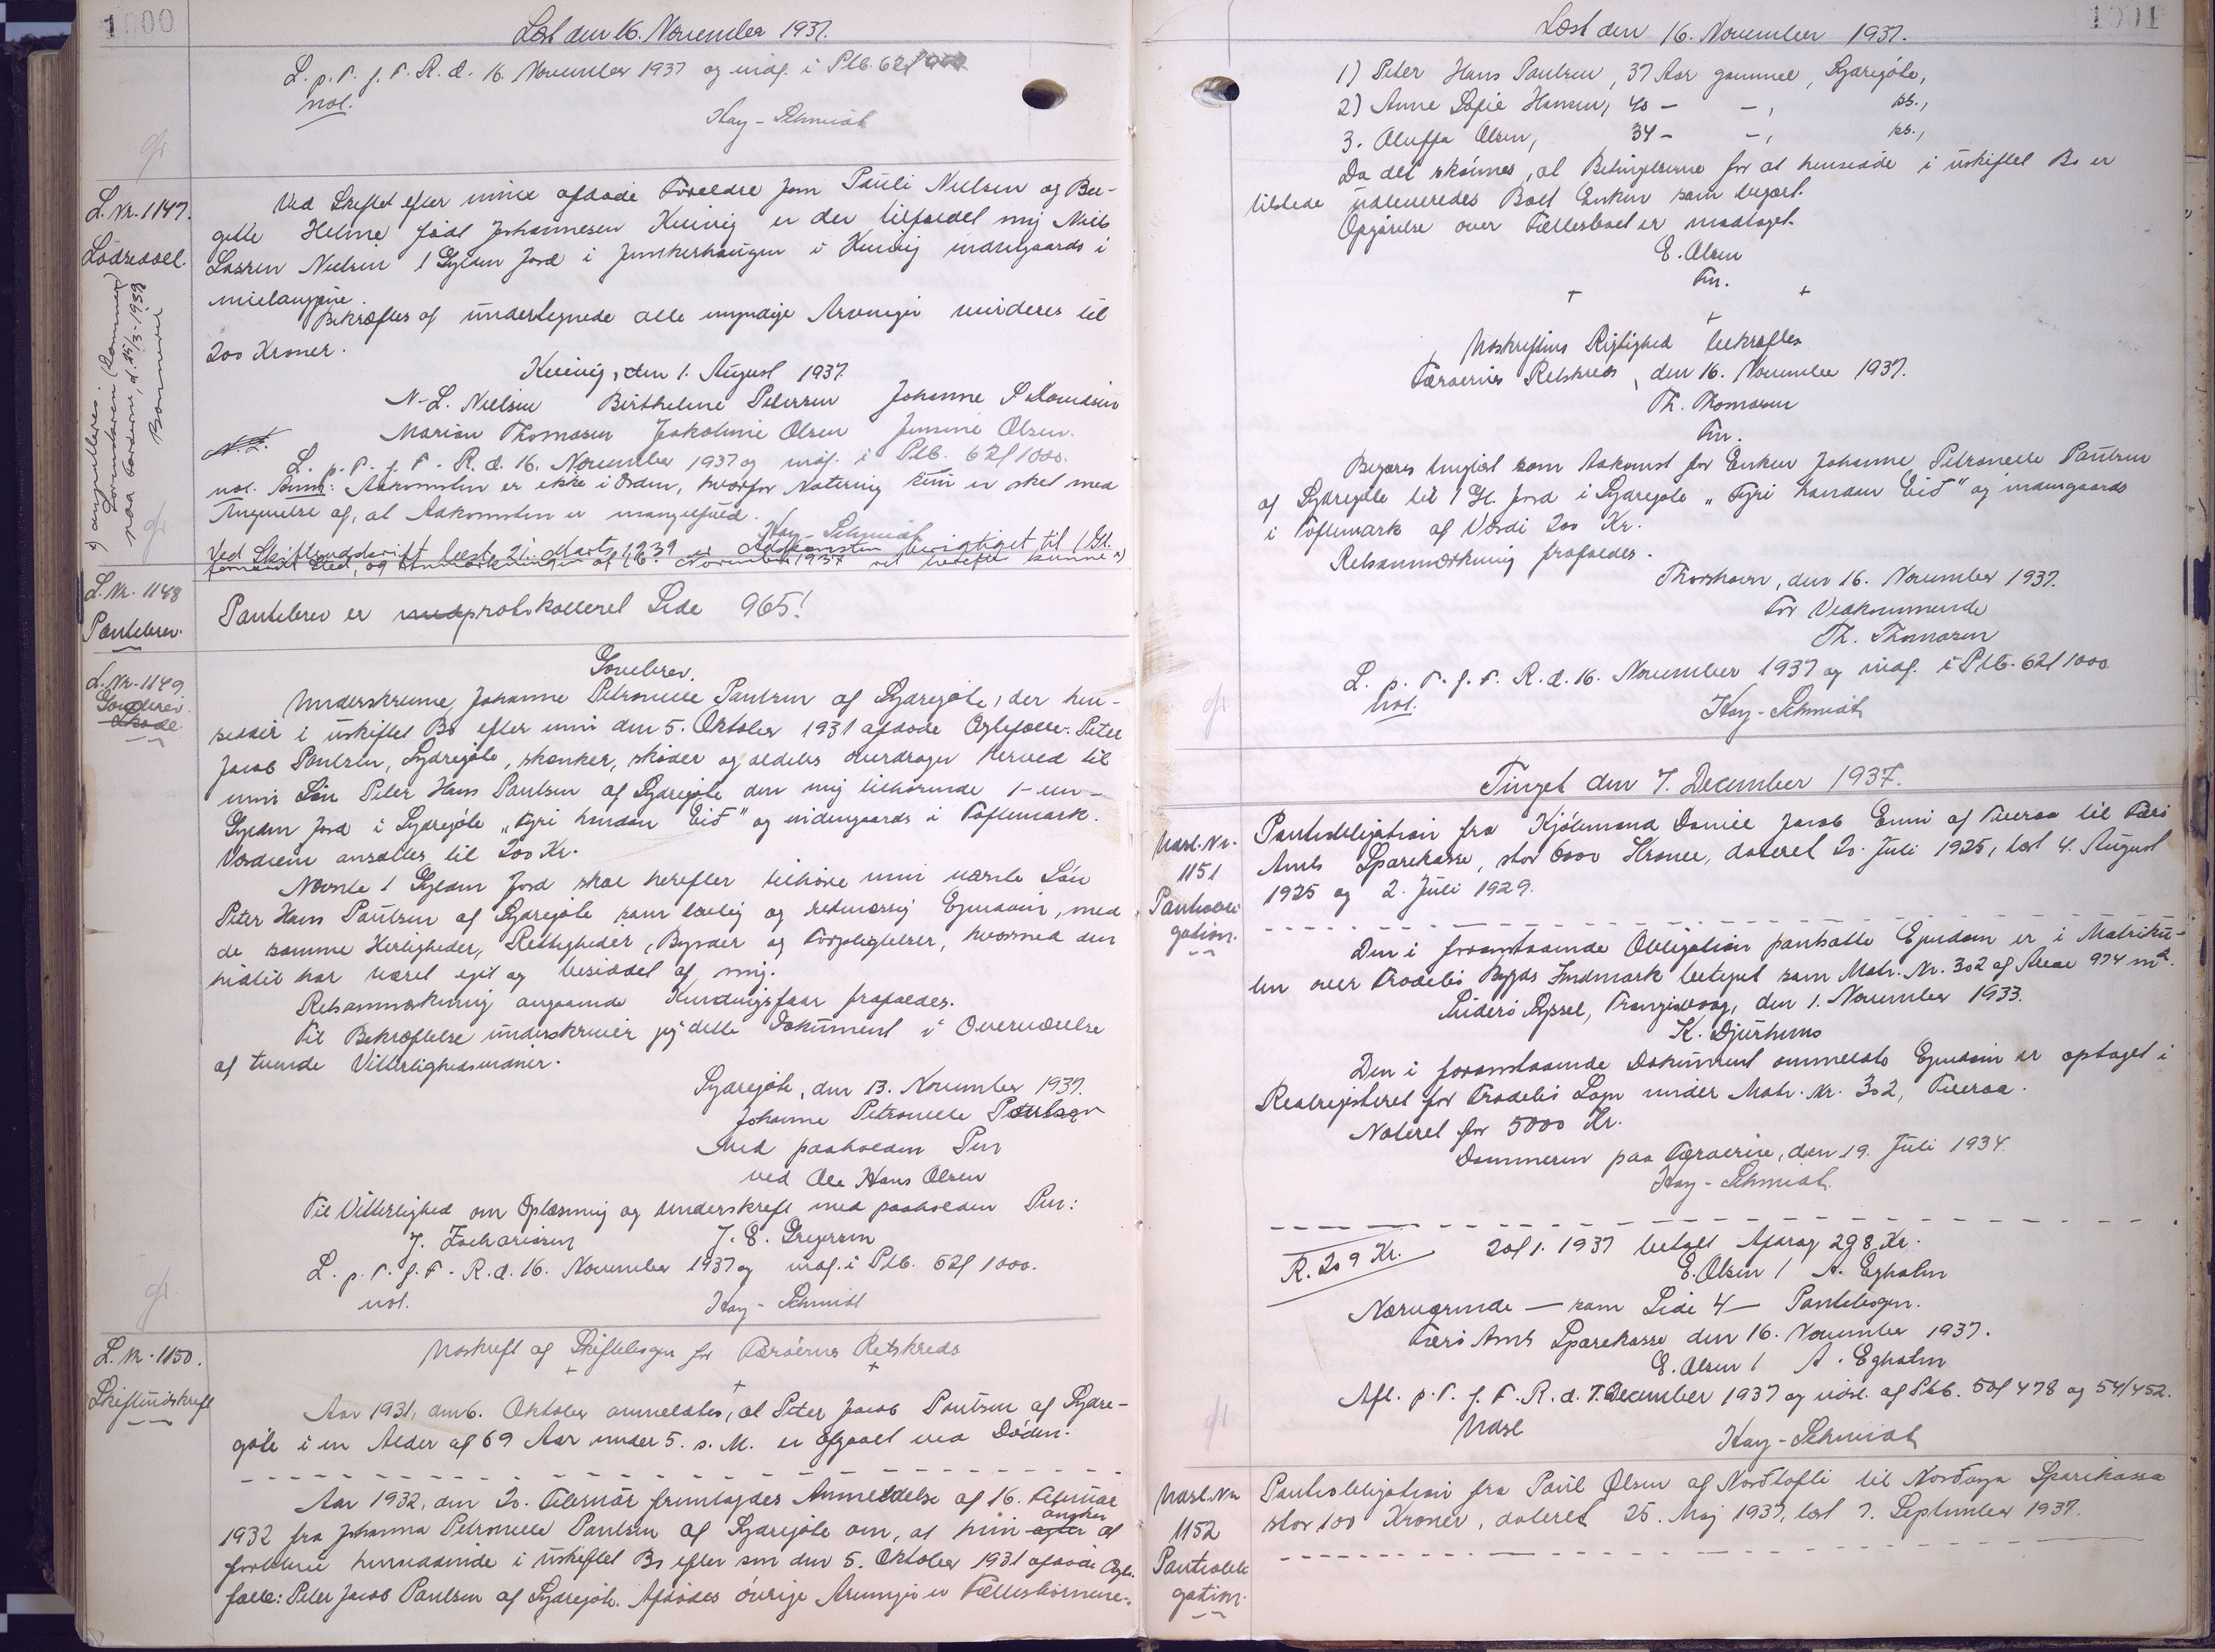 1000
Læst den 16. November 1937.
L. p. T. f. F. R. d. 16. November 1937 og indf. i Ptb. 62/1000
not.
Kay-Schmidt
L. Nr. 1147.
Lodseddel.
Ved Skiftet efter mine afdøde Forældre Joen Pauli Nielsen og Bir-
gitte Heline født Johannesen Kvivig er der tilfaldet mig Niels
Lassen Nielsen 1 Gylden Jord i Junkerhaugen i Kvivig indengaards i
Bekræftes af undertegnede alle myndige Arvinger vurderes til
200 Kroner.
Kvivig, den 1. August 1937.
N. L. Nielsen Birtheline Petersen Johanne Salomonsen
Marian Thomasen Jakobine Olsen Jensine Olsen.
L. p. T. f. F. R. d. 16. November 1937 og indf. i Ptb. 62/1000.
not. Anm: Adkomsten er ikke i Orden, hvorfor Notering kun er sket med
Angivelse af, at Adkomsten er mangelfuld.
Kay-Schmidt
Ved Skifteudskrift læst 21. Marts 1939 er Adkomsten berigtiget til 1 Gl.
fornævnt Sted, og Anmærkningen af 16. November 1937 vil herefter kunne x)
x) annulleres.
Dommeren
paa Færøerne, d. 15/3-1939
L. Nr. 1148
Pantebrev.
Pantebrev er protokolleret Side 965!
L. Nr. 1149.
Gavebrev.
Skøde
Gavebrev.
Underskrevne, Johanne Petronelle Paulsen af Sydregøte, der hen-
sidder i uskiftet Bo efter min den 5. Oktober 1931 afdøde Ægtefælle Peter
Jacob Paulsen, Sydregøte, skænker, skøder og aldeles overdrager herved til
min Søn Peter Hans Paulsen af Sydregøte den mig tilhørende 1-en-
Gylden Jord i Sydregøte „Fyri handan Eið" og indengaards i Toftemark.
Værdien ansættes til 200 Kr.
Nævnte 1 Gylden Jord skal herefter tilhøre min nævnte Søn
Peter Hans Paulsen af Sydregøte som lovlig og retmæssig Ejendom, med
de samme Herligheder, Rettigheder, Byrder og Forpligtelser, hvormed den
hidtil har været ejet og besiddet af mig.
Retsanmærkning angaaende Kundvigsfaar frafaldes.
Til Bekræftelse underskriver jeg dette Dokument i Overværelse
af tvende Vitterlighedsvidner.
Sydregøte, den 13. November 1937.
Johanne Petronelle Paulsen
Med paaholden Pen
ved Ole Hans Olsen
Til Vitterlighed om Oplæsning og Underskrift med paaholden Pen:
J. Zachariasen J. E. Gregersen
L. p. T. f. F. R. d. 16. November 1937 og indf. i Ptb. 62/1000.
not. Kay-Schmidt
L. Nr. 1150.
Skifteudskrift
Udskrift af Skiftebogen for Færøernes Retskreds
Aar 1931, den 6. Oktober anmeldtes, at Peter Jacob Paulsen af Sydre-
gøte i en Alder af 69 Aar under 5. s. M. er afgaaet ved Døden.
Aar 1932, den 20. Februar fremlagdes Anmeldelse af 16. Februar
1932 fra Johanna Petronelle Paulsen af Sydregøte om, at hun agter ønsker at
forblive hensiddende i uskiftet Bo efter sin den 5. Oktober 1931 afdøde Ægte-
fælle: Peter Jacob Paulsen af Sydregøte. Afdødes øvrige Arvinger er Fællesbørnene:
1001
Læst den 16. November 1937.
1) Peter Hans Paulsen, 37 Aar gammel, Sydregøte,
2) Anne Sofie Hansen, 40 - - , ss.,
3. Oluffa Olsen, 34 - - , ss.,
Da det skønnes, at Betingelserne for at hensidde i uskiftet Bo er
tilstede udleveredes Boet Enken som begært.
Opgørelse over Fællesboet er modtaget.
E. Olsen
Fm.
Udskriftens Rigtighed bekræftes
Færøernes Retskreds, den 16. November 1937.
Th. Thomasen
Fm.
Begæres tinglæst som Adkomst for Enken Johanne Petronelle Paulsen
af Sydregøte til 1 Gl. Jord i Sydregøte „Fyri handan Eið" og indengaards
i Toftemark af Værdi 200 Kr.
Retsanmærkning frafaldes.
Thorshavn, den 16. November 1937.
For Vedkommende
Th. Thomasen
L. p. T. f. F. R. d. 16. November 1937 og indf. i Ptb. 62/1000
not. Kay-Schmidt
Tinget den 7. December 1937.
Udsl. Nr.
1151
Pantobli-
gation.
Pantobligation fra Kjølmand Daniel Jacob Enni af Tveraa til Færø
Amts Sparekasse, stor 6000 Kroner, dateret 20. Juli 1925, læst 4. August
1925 og 2. Juli 1929.
Den i foranstaaende Obligation pantsatte Ejendom er i Matriku-
len over Frodebø Bygds Indmark betegnet som Matr. Nr. 302 af Areal 974 m².
Suderø Syssel, Trangisvaag, den 1. November 1933.
K. Djurhuus
Den i foranstaaende Dokument ommeldte Ejendom er optaget i
Realregisteret for Frodebø Sogn under Matr. Nr. 302, Tveraa.
Noteret for 5000 Kr.
Dommeren paa Færøerne, den 19. Juli 1934.
Kay-Schmidt.
R. 209 Kr. 20/1. 1937 betalt Afdrag 298 Kr.
E. Olsen / A. Egholm
Nærværende — som Side 4 — Pantebogen.
Færø Amts Sparekasse den 16. November 1937.
E. Olsen / A. Egholm
Afl. p. T. f. F. R. d. 7. December 1937 og udsl. af Ptb. 50/478 og 54/452.
Udsl Kay-Schmidt
Udsl. Nr.
1152
Pantobli-
gation.
Pantobligation fra Paul Olsen af Norðtofti til Norðoya Sparikassa
stor 100 Kroner, dateret 25. Maj 1937, læst 7. September 1937.